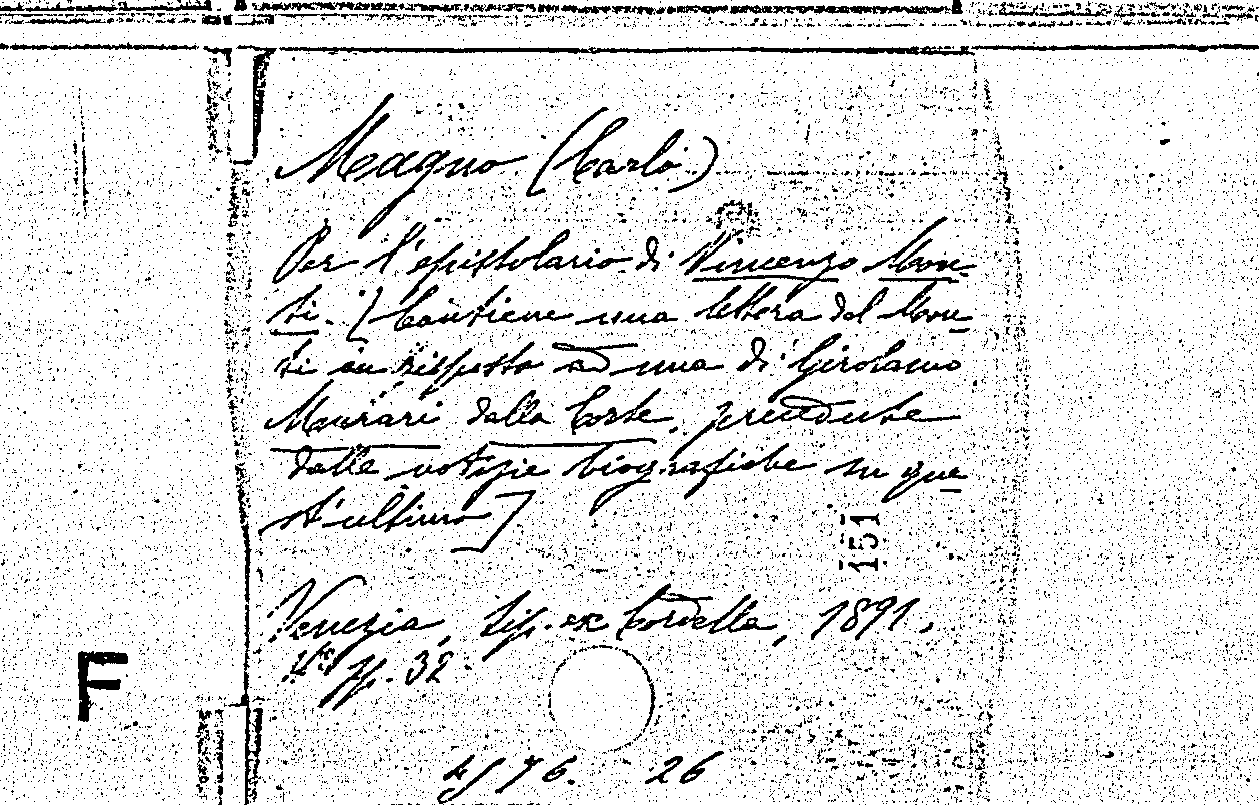 Magno (Carlo)
Per l'epistolario di Vincenzo Mon-
ti. [Contiene una lettera del Mon-
ti in risposta ad una di Girolamo
Murari dalla Corte, precedute
dalle notizie biografiche su que-
st'ultimo]
151
Venezia, tip. ex Cordella, 1891,
pp. 32
F
26